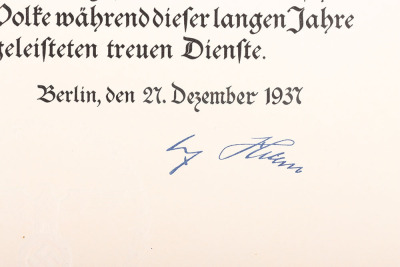 Volke während dieser langen Jahre
geleisteten treuen Dienste.
Berlin, den 27. Dezember 1937